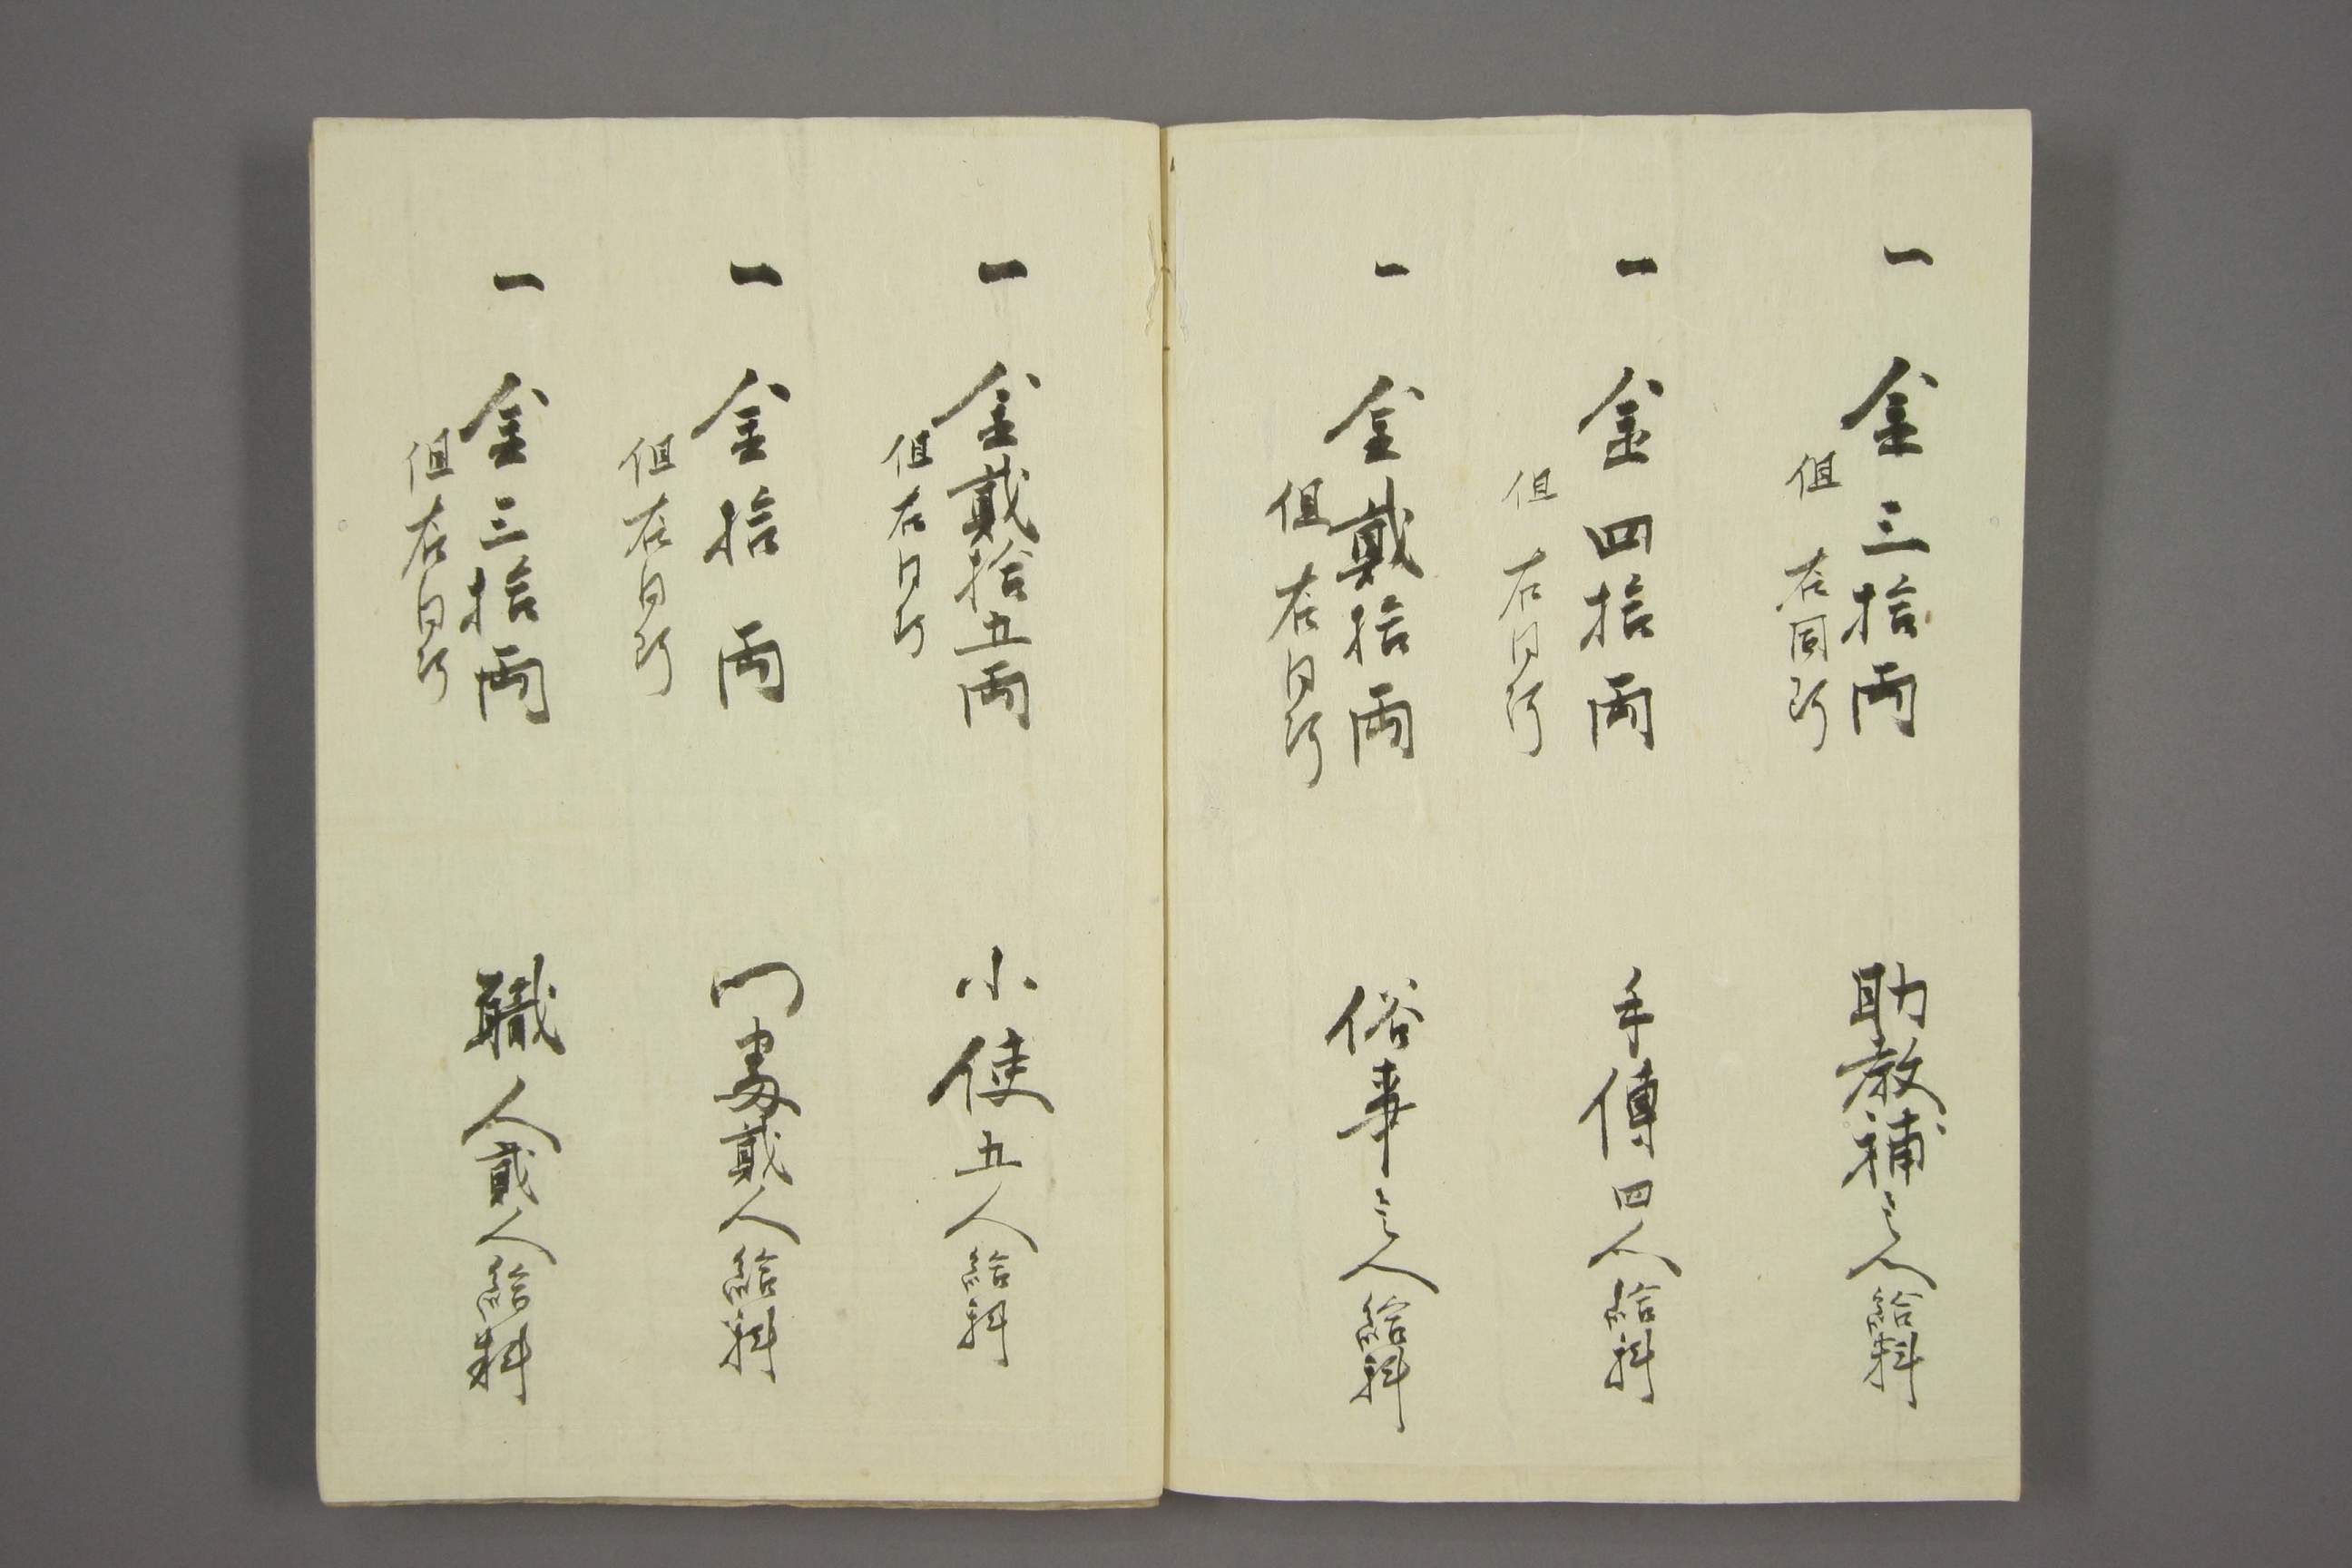 一 金三拾両 助教補壱人給料
但右同断
一 金四拾両 手傳四人給料
但右同断
一 金貳拾両 俗事壱人給料
但右同断
一 金貳拾五両 小使五人給料
但右同断
一 金拾両 門番貳人給料
但右同断
一 金三拾両 職人貳人給料
但右同断